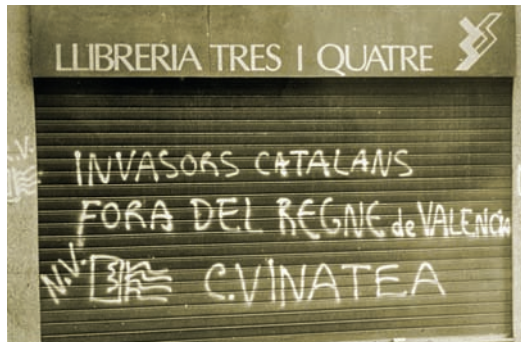 LLIBRERIA TRES I QUATRE
INVASORS CATALANS
FORA DEL REGNE de VALENCIA
N.V. C.VINATEA